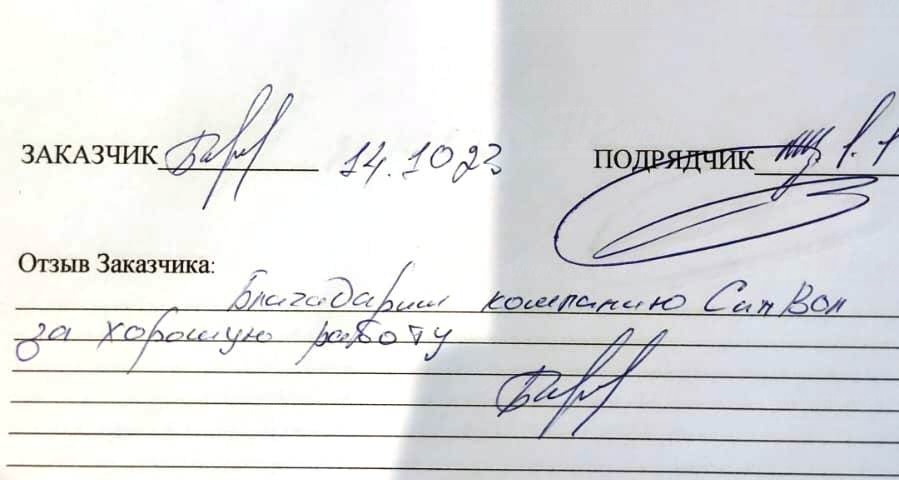 ЗАКАЗЧИК 14.10 23 ПОДРЯДЧИК
Отзыв Заказчика:
Благодарим компанию СипВол
за хорошую работу